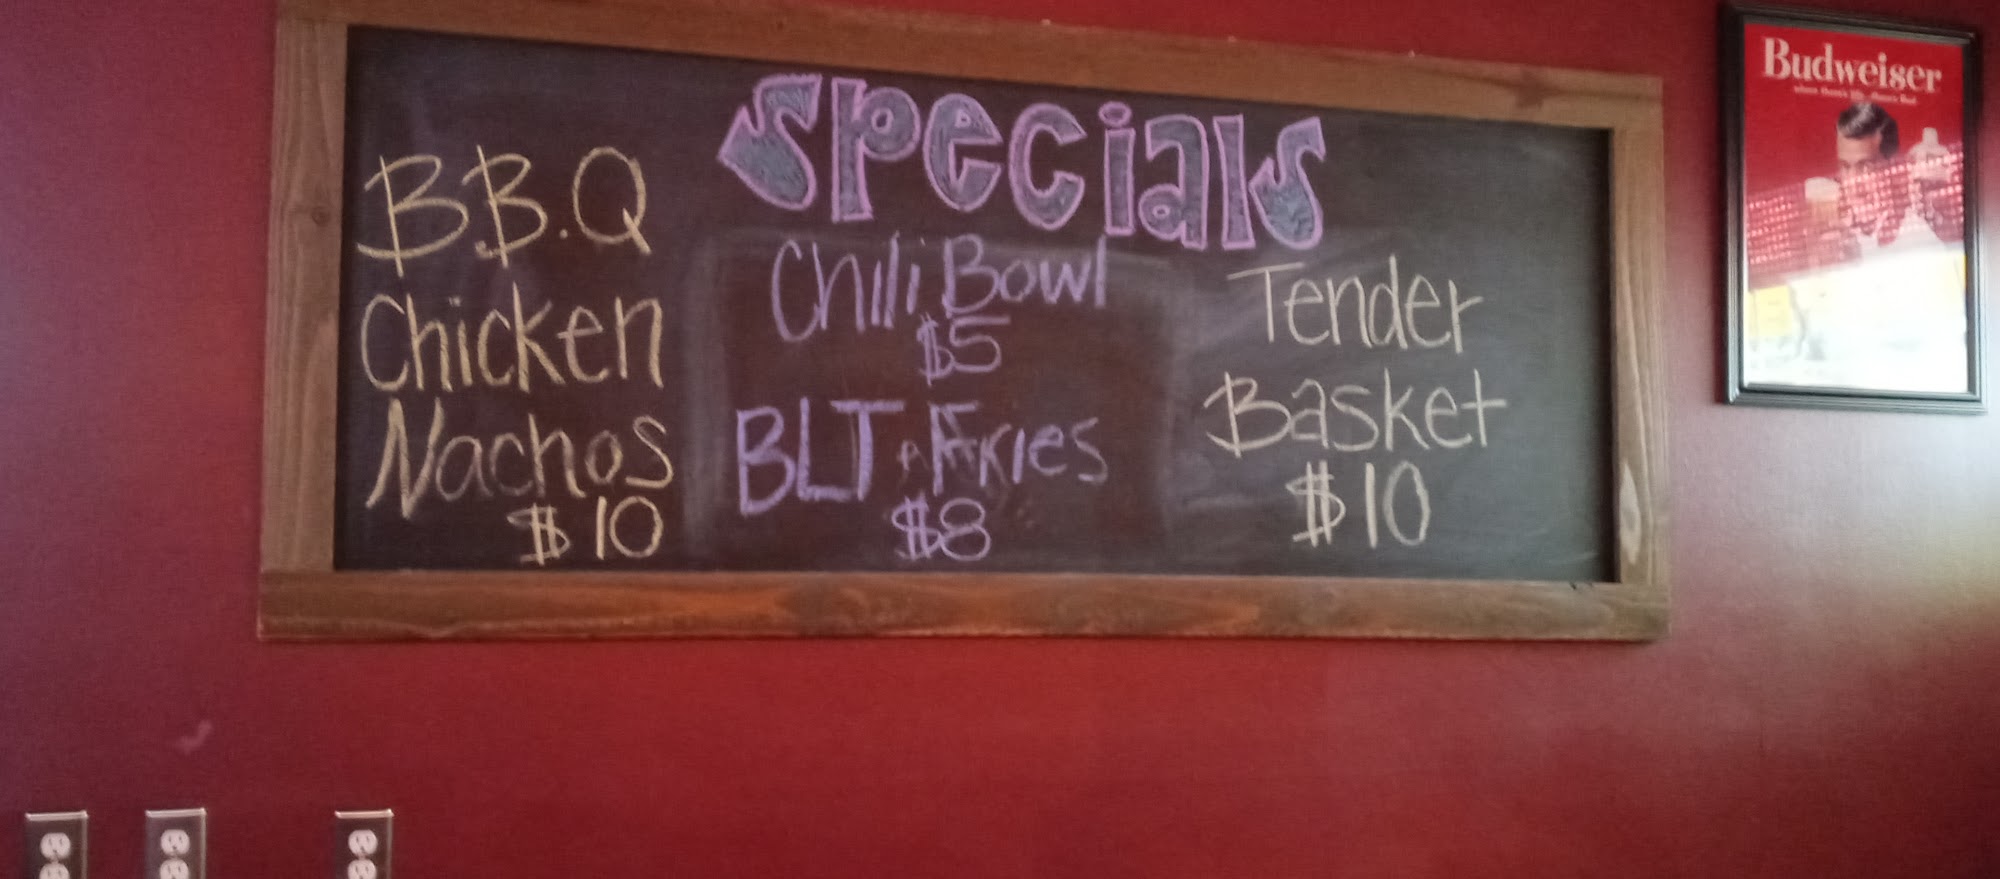 Specials
B.B.Q
Chicken
Nachos
$10
Chili Bowl
$5
BLT & Fries
$8
Tender
Basket
$10
Budweiser